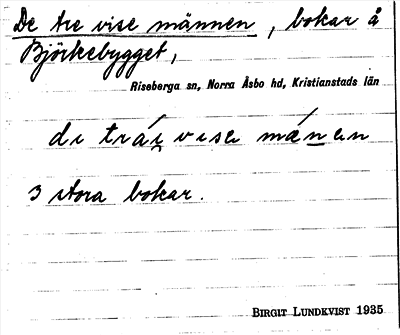 De tre vise männen, bokar å
Björkebygget,
Riseberga sn, Norra Åsbo hd, Kristianstads län
di trái̯ visa mánan
3 stora bokar.
BIRGIT LUNDKVIST 1935